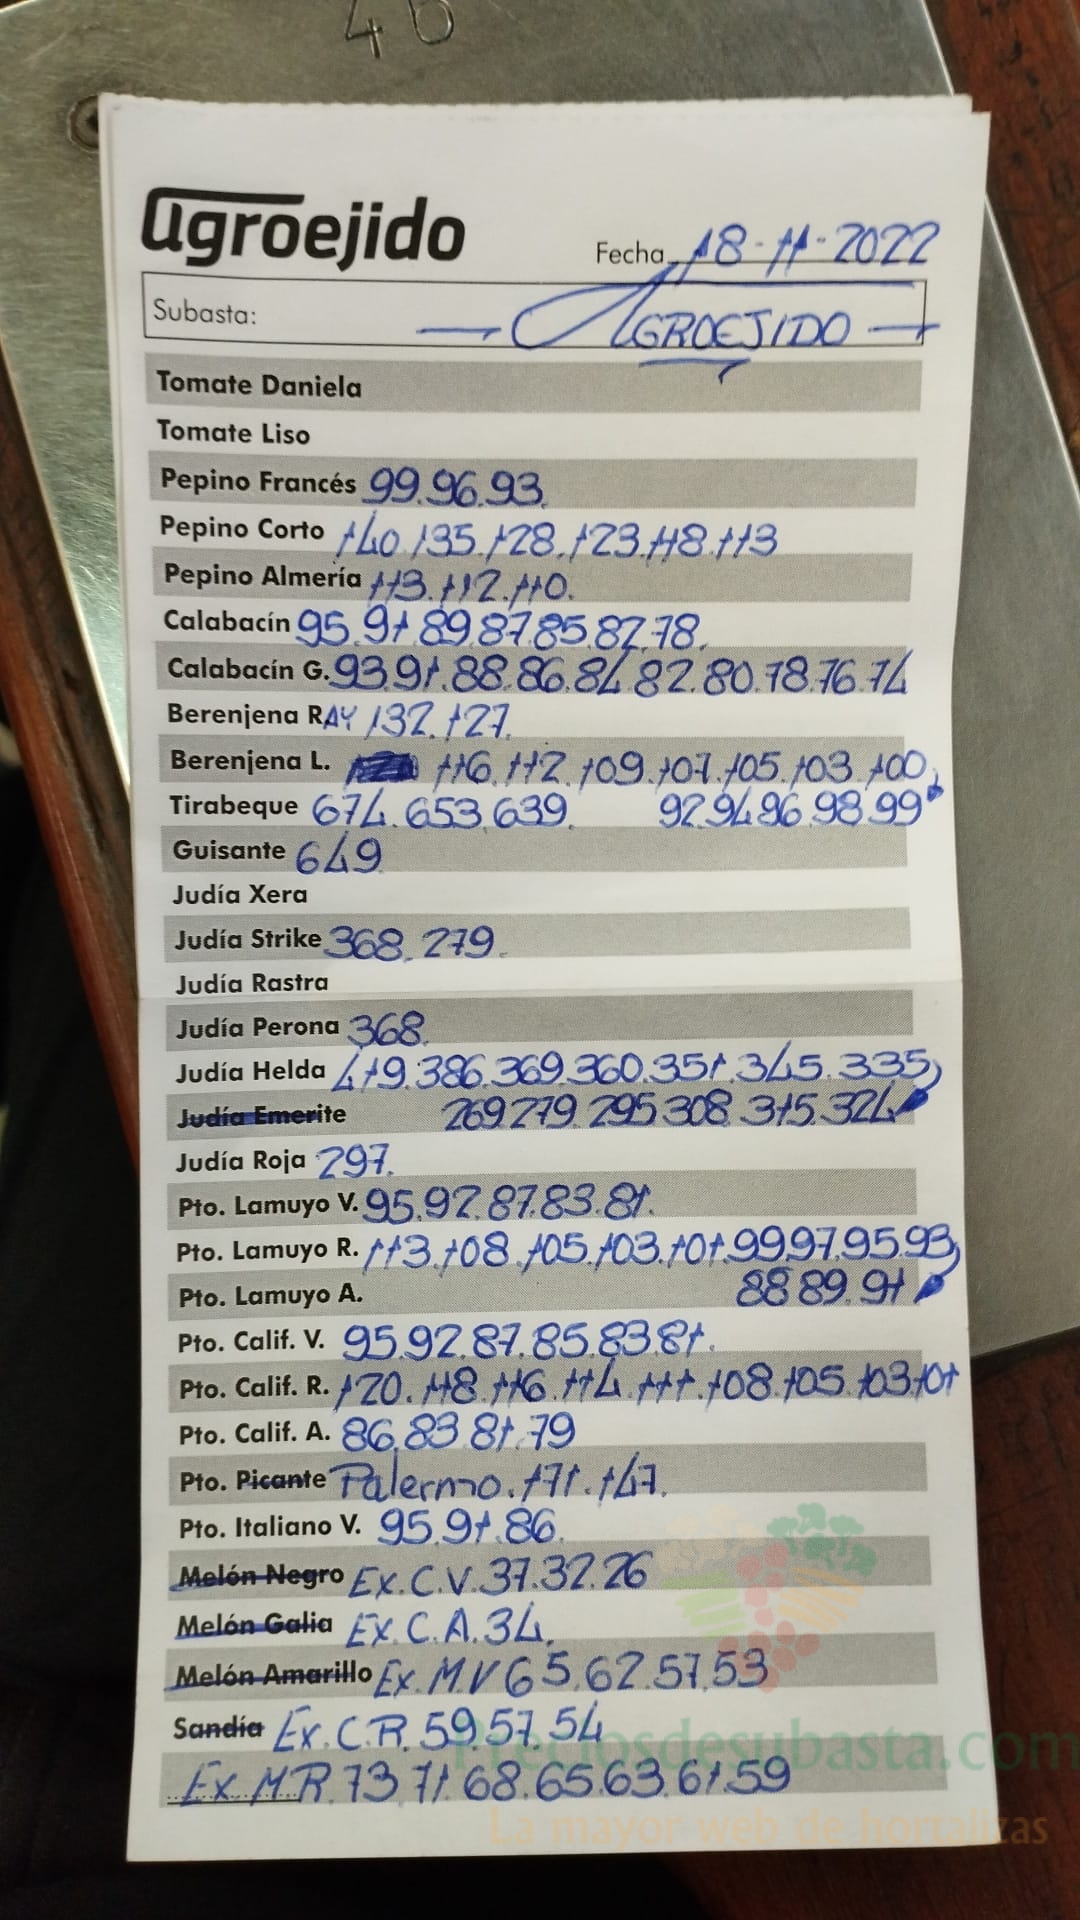 46
agroejido
Fecha 18-11-2022
Subasta: AGROEJIDO
Tomate Daniela
Tomate Liso
Pepino Francés 99.96.93.
Pepino Corto 140.135.128.123.118.113
Pepino Almería 113.112.110.
Calabacín 95.91.89.87.85.82.78.
Calabacín G. 93.91.88.86.84.82.80.78.76.74
Berenjena RAY 132.127.
Berenjena L. 116.112.109.107.105.103.100
Tirabeque 674.653.639. 92.94.96.98.99
Guisante 649
Judía Xera
Judía Strike 368.279.
Judía Rastra
Judía Perona 368.
Judía Helda 419.386.369.360.351.345.335
Judía Emerite 269.279.295.308.315.324
Judía Roja 297.
Pto. Lamuyo V. 95.92.87.83.81.
Pto. Lamuyo R. 113.108.105.103.101.99.97.95.93
Pto. Lamuyo A. 88.89.91
Pto. Calif. V. 95.92.87.85.83.81.
Pto. Calif. R. 120.118.116.114.111.108.105.103.101
Pto. Calif. A. 86.83.81.79
Pto. Picante Palermo.171.147.
Pto. Italiano V. 95.91.86.
Melón Negro Ex.C.V.37.32.26
Melón Galia Ex.C.A.34.
Melón Amarillo Ex.M.V 65.62.57.53
Sandía Ex.C.R.59.57.54
Ex.M.R.73.71.68.65.63.61.59
Preciosdesubasta.com
La mayor web de hortalizas